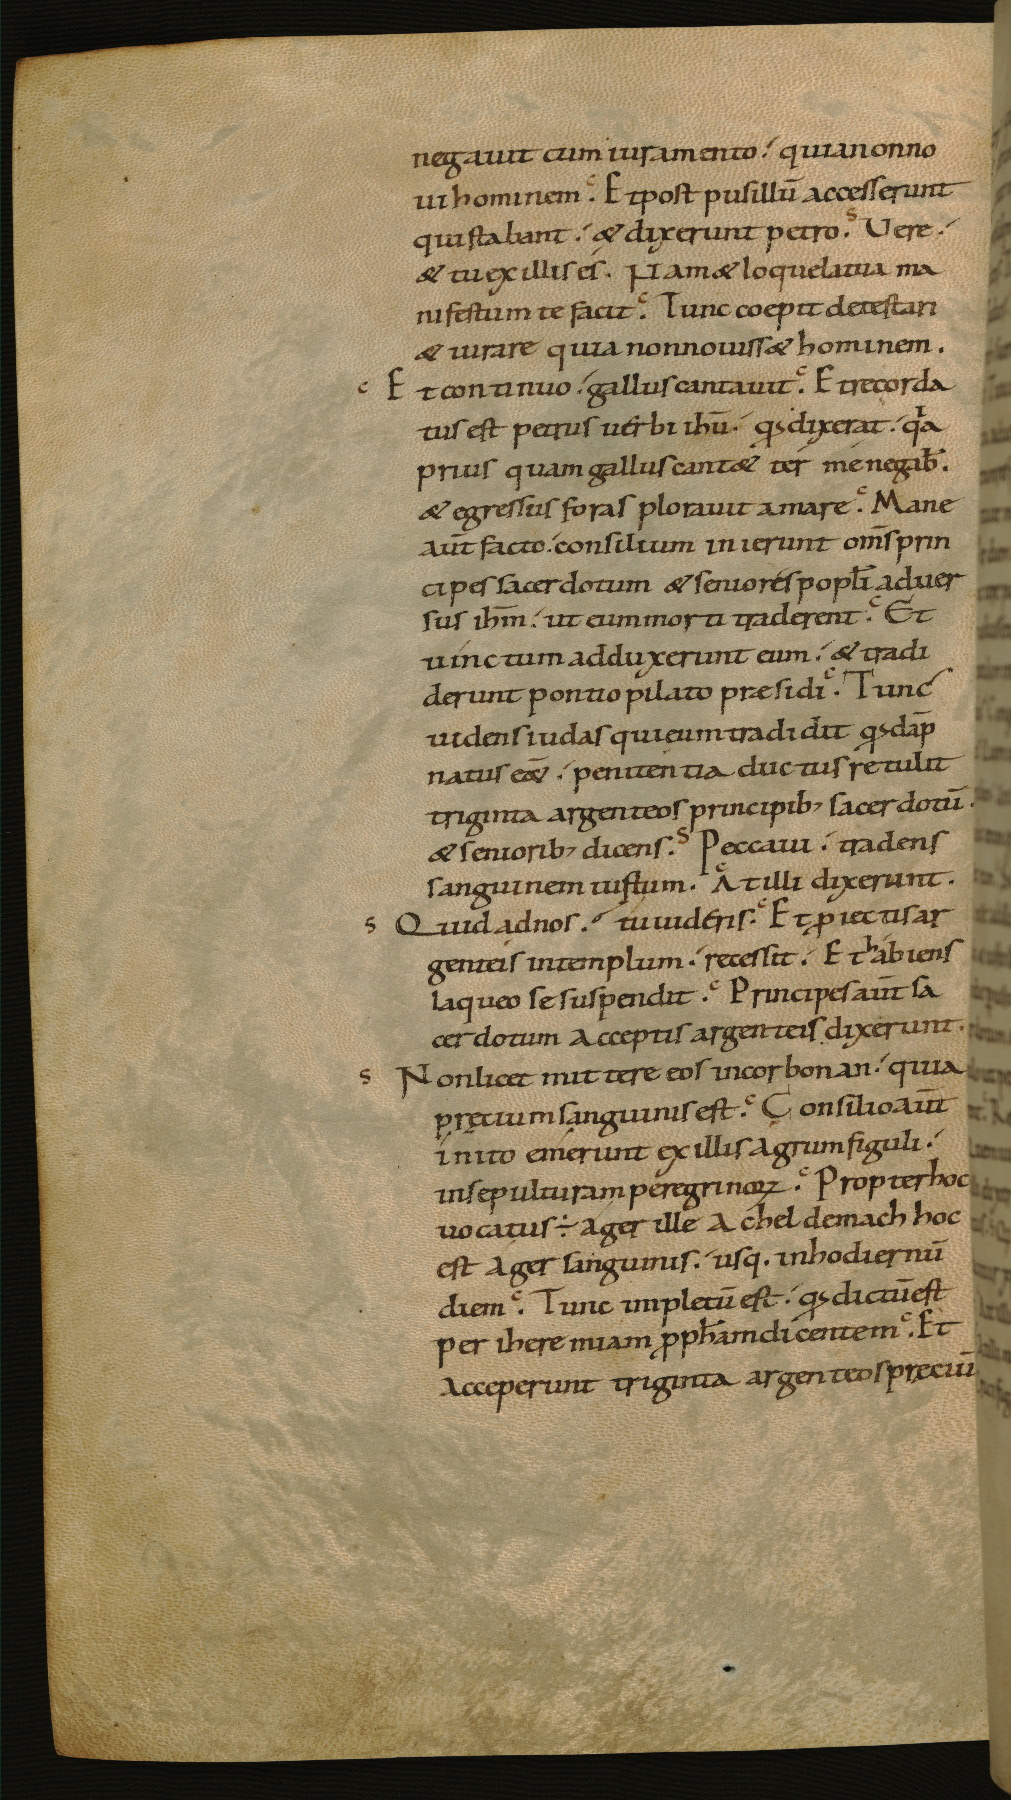 negauit cum iuramento · quia non no
ui hominem · c Et post pusillū accesserunt
qui stabant · & dixerunt petro · s Uere ·
& tu ex illis es · Nam & loquela tua ma
nifestum te facit · c Tunc coepit detestari
& iurare quia non nouiss& hominem ·
c Et continuo · gallus cantauit · c Et recorda
tus est petrus uerbi ihū · qđ dixerat · qa
prius quam gallus cant& ter me negab̄ ·
& egressus foras plorauit amare · c Mane
aūt facto · consilium inierunt om̄s prin
cipes sacerdotum & seniores popli aduer
sus ihm̄ · ut eum morti traderent · c Et
uinctum adduxerunt eum · & tradi
derunt pontio pilato præsidi · c Tunc
uidens iudas qui eum tradidit qđ dāp
natus eēt · penitentia ductus retulit
triginta argenteos principib; sacerdotū ·
& seniorib; dicens · s Peccaui · tradens
sanguinem iustum · c At illi dixerunt ·
s Quid ad nos · tu uideris · c Et p̄iectis ar
genteis in templum · recessit · Et habiens
laqueo se suspendit · c Principes aūt sa
cerdotum acceptis argenteis dixerunt ·
s Non licet mittere eos in corbonan · quia
prętium sanguinis est · c Consilio aūt
inito emerunt ex illis agrum figuli ·
in sepulturam peregrinoꝝ · c Propter hoc
uocatus ÷ ager ille acheldemach hoc
est ager sanguinis · usq. in hodiernū
diem · c Tunc impletū est · qđ dictū est
per iheremiam ꝓph̄am dicentem · c Et
acceperunt triginta argenteos pręciū